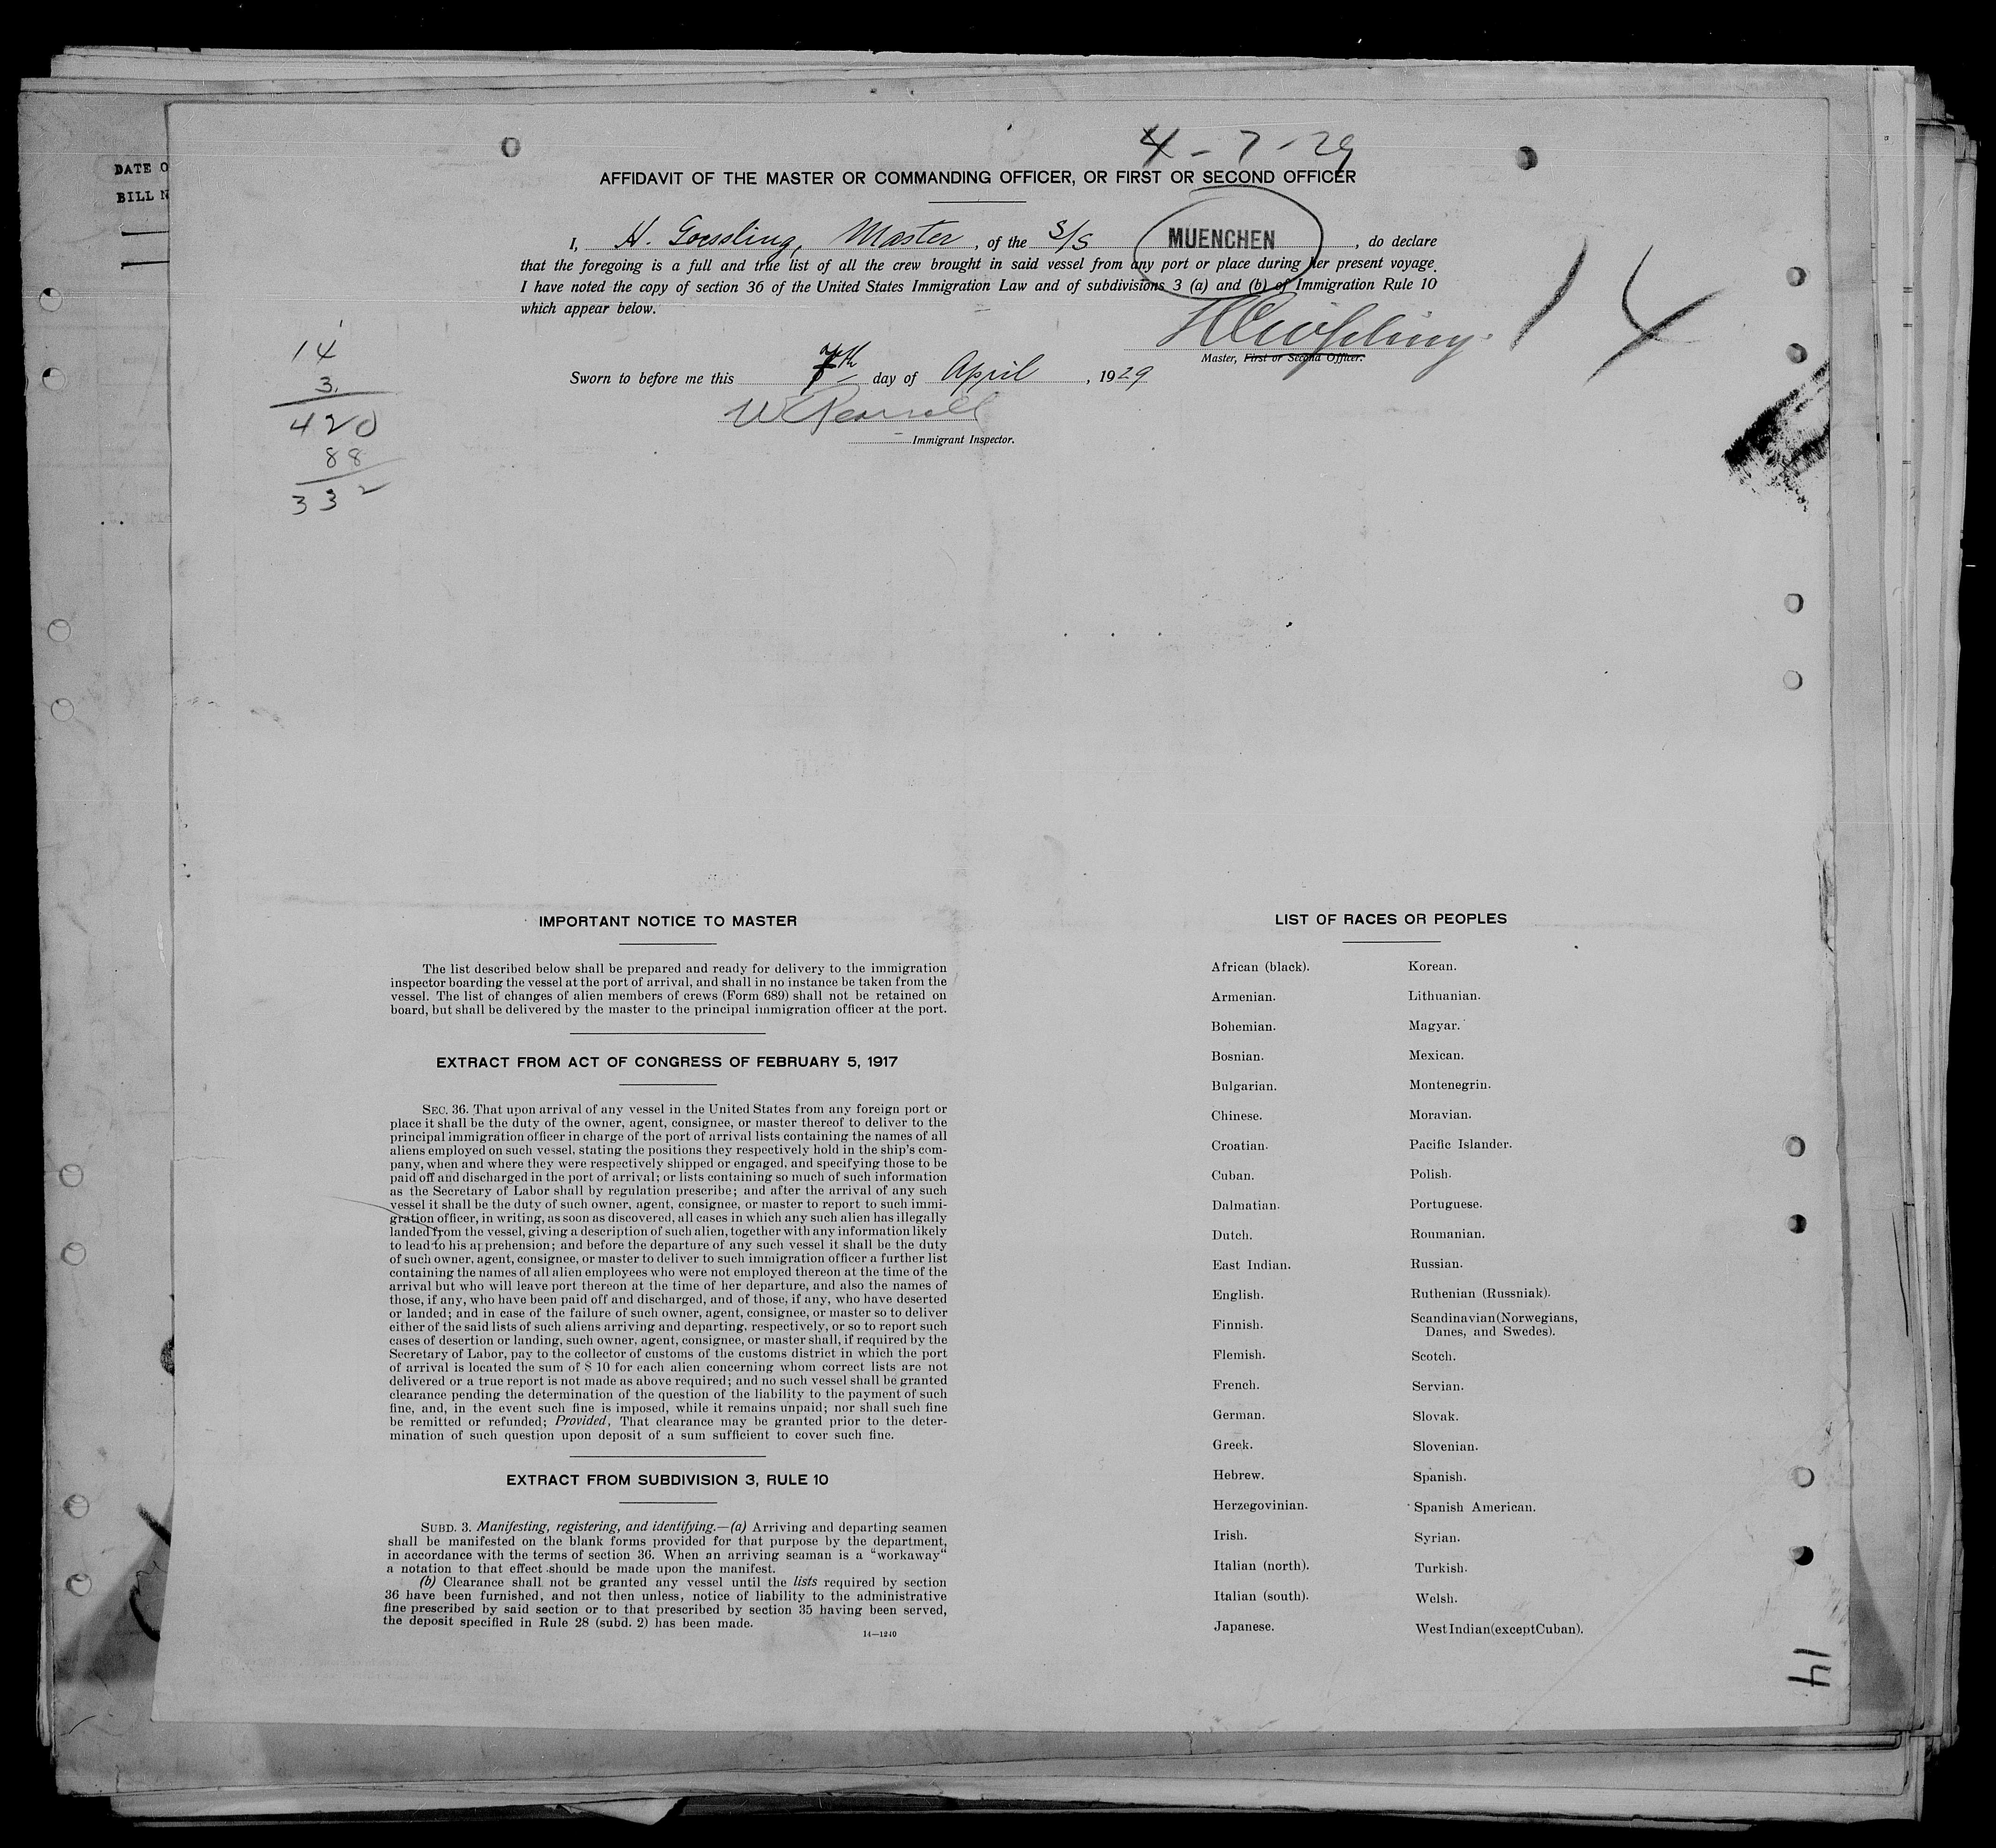 4 - 7 - 29
DATE O
BILL N
AFFIDAVIT OF THE MASTER OR COMMANDING OFFICER, OR FIRST OR SECOND OFFICER
I, H. Goessling, Master, of the S/S MUENCHEN, do declare
that the foregoing is a full and true list of all the crew brought in said vessel from any port or place during her present voyage.
I have noted the copy of section 36 of the United States Immigration Law and of subdivisions 3 (a) and (b) of Immigration Rule 10
which appear below.
14
Master, First or Second Officer.
Sworn to before me this 7th day of April, 1929
Immigrant Inspector.
14
3
420
88
332
IMPORTANT NOTICE TO MASTER
The list described below shall be prepared and ready for delivery to the immigration
inspector boarding the vessel at the port of arrival, and shall in no instance be taken from the
vessel. The list of changes of alien members of crews (Form 689) shall not be retained on
board, but shall be delivered by the master to the principal immigration officer at the port.
EXTRACT FROM ACT OF CONGRESS OF FEBRUARY 5, 1917
SEC. 36. That upon arrival of any vessel in the United States from any foreign port or
place it shall be the duty of the owner, agent, consignee, or master thereof to deliver to the
principal immigration officer in charge of the port of arrival lists containing the names of all
aliens employed on such vessel, stating the positions they respectively hold in the ship's com-
pany, when and where they were respectively shipped or engaged, and specifying those to be
paid off and discharged in the port of arrival; or lists containing so much of such information
as the Secretary of Labor shall by regulation prescribe; and after the arrival of any such
vessel it shall be the duty of such owner, agent, consignee, or master to report to such immi-
gration officer, in writing, as soon as discovered, all cases in which any such alien has illegally
landed from the vessel, giving a description of such alien, together with any information likely
to lead to his apprehension; and before the departure of any such vessel it shall be the duty
of such owner, agent, consignee, or master to deliver to such immigration officer a further list
containing the names of all alien employees who were not employed thereon at the time of the
arrival but who will leave port thereon at the time of her departure, and also the names of
those, if any, who have been paid off and discharged, and of those, if any, who have deserted
or landed; and in case of the failure of such owner, agent, consignee, or master so to deliver
either of the said lists of such aliens arriving and departing, respectively, or so to report such
cases of desertion or landing, such owner, agent, consignee, or master shall, if required by the
Secretary of Labor, pay to the collector of customs of the customs district in which the port
of arrival is located the sum of $ 10 for each alien concerning whom correct lists are not
delivered or a true report is not made as above required; and no such vessel shall be granted
clearance pending the determination of the question of the liability to the payment of such
fine, and, in the event such fine is imposed, while it remains unpaid; nor shall such fine
be remitted or refunded; Provided, That clearance may be granted prior to the deter-
mination of such question upon deposit of a sum sufficient to cover such fine.
EXTRACT FROM SUBDIVISION 3, RULE 10
SUBD. 3. Manifesting, registering, and identifying.—(a) Arriving and departing seamen
shall be manifested on the blank forms provided for that purpose by the department,
in accordance with the terms of section 36. When an arriving seaman is a "workaway"
a notation to that effect should be made upon the manifest.
(b) Clearance shall not be granted any vessel until the lists required by section
36 have been furnished, and not then unless, notice of liability to the administrative
fine prescribed by said section or to that prescribed by section 35 having been served,
the deposit specified in Rule 28 (subd. 2) has been made.
14—1240
LIST OF RACES OR PEOPLES
African (black).
Armenian.
Bohemian.
Bosnian.
Bulgarian.
Chinese.
Croatian.
Cuban.
Dalmatian.
Dutch.
East Indian.
English.
Finnish.
Flemish.
French.
German.
Greek.
Hebrew.
Herzegovinian.
Irish.
Italian (north).
Italian (south).
Japanese.
Korean.
Lithuanian.
Magyar.
Mexican.
Montenegrin.
Moravian.
Pacific Islander.
Polish.
Portuguese.
Roumanian.
Russian.
Ruthenian (Russniak).
Scandinavian (Norwegians,
Danes, and Swedes).
Scotch.
Servian.
Slovak.
Slovenian.
Spanish.
Spanish American.
Syrian.
Turkish.
Welsh.
West Indian (except Cuban).
14